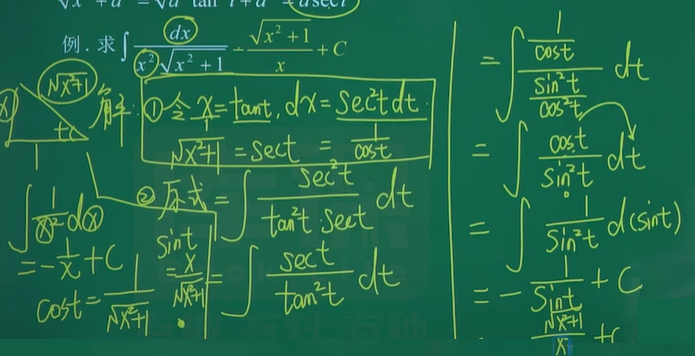 √x²+a² = √a² tan² t+a² = asect
例．求∫ dx / (x²√(x²+1)) = -√(x²+1) / x + C
√x²+1
x
t
1
解:
① 令 x = tant, dx = sec²t dt.
√x²+1 = sect = 1/cost
② 原式 = ∫ sec²t / (tan²t · sect) dt
= ∫ sect / tan²t dt
∫ 1/x² dx
= -1/x + C
cost = 1/√x²+1
sint = x/√x²+1
= ∫ (1/cost) / (sin²t/cos²t) dt
= ∫ cost / sin²t dt
= ∫ 1/sin²t d(sint)
= - 1/sint + C
√x²+1 / x + C